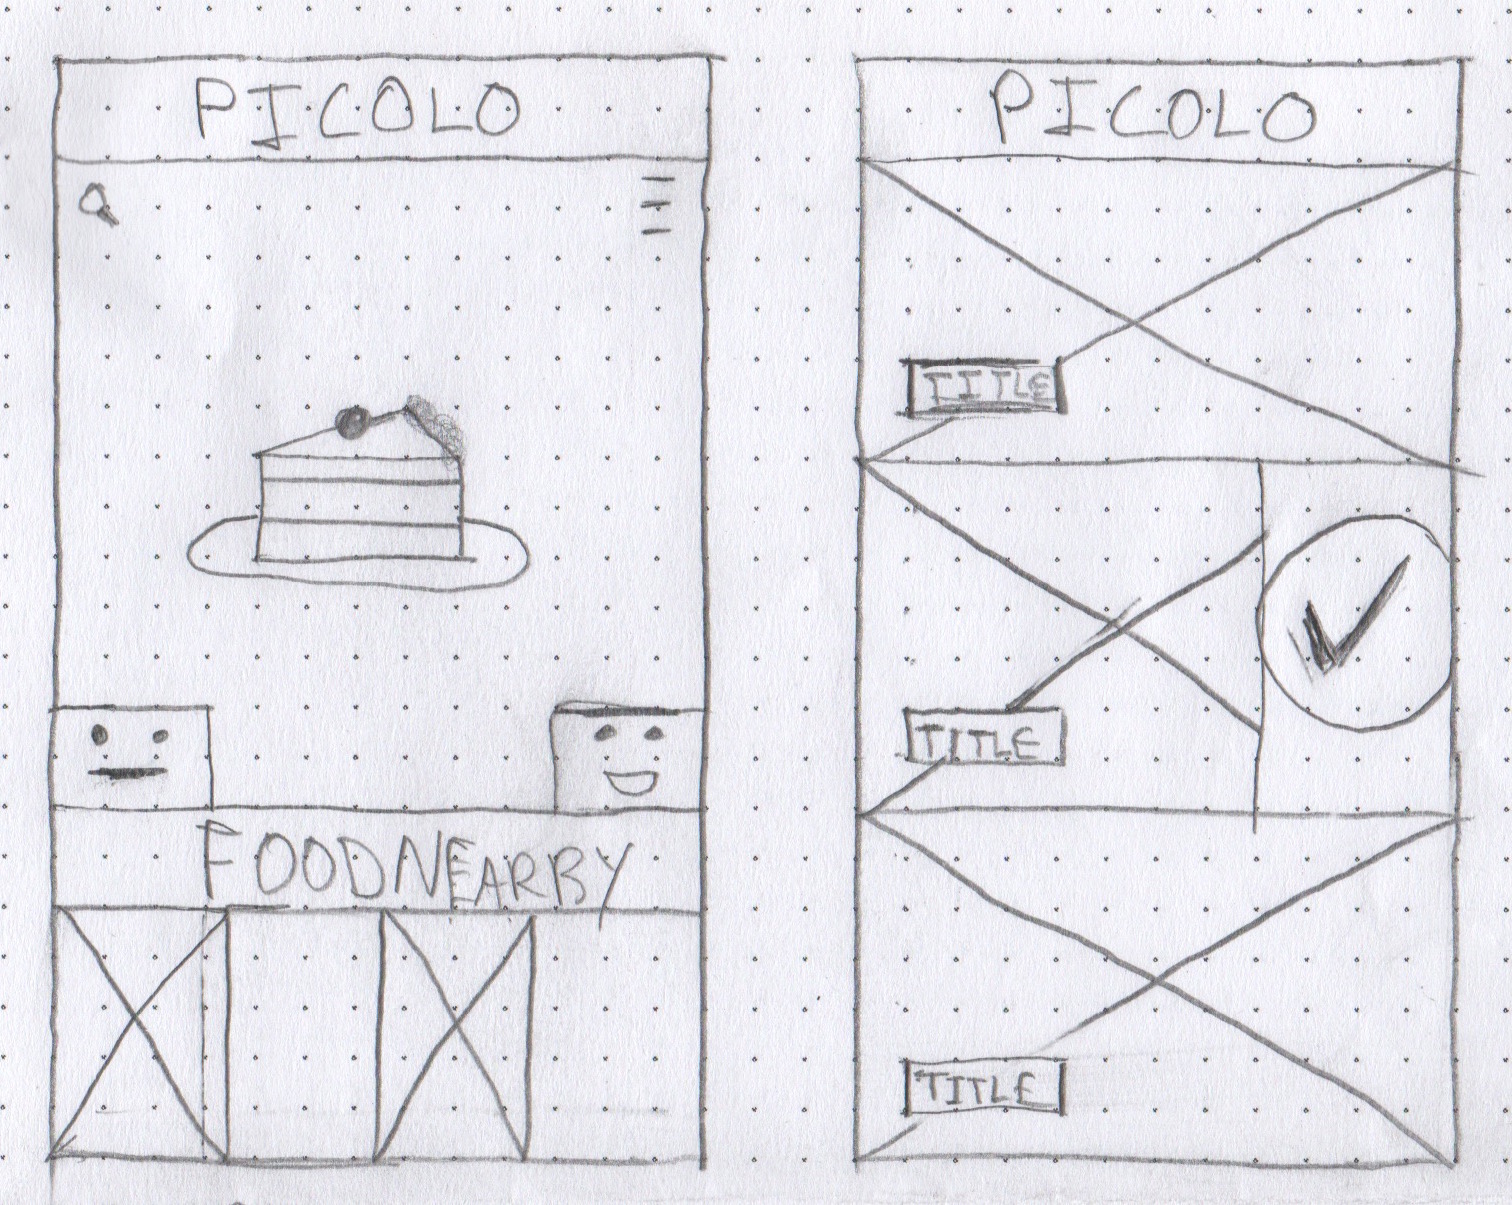 PICOLO
FOOD NEARBY
PICOLO
TITLE
TITLE
TITLE